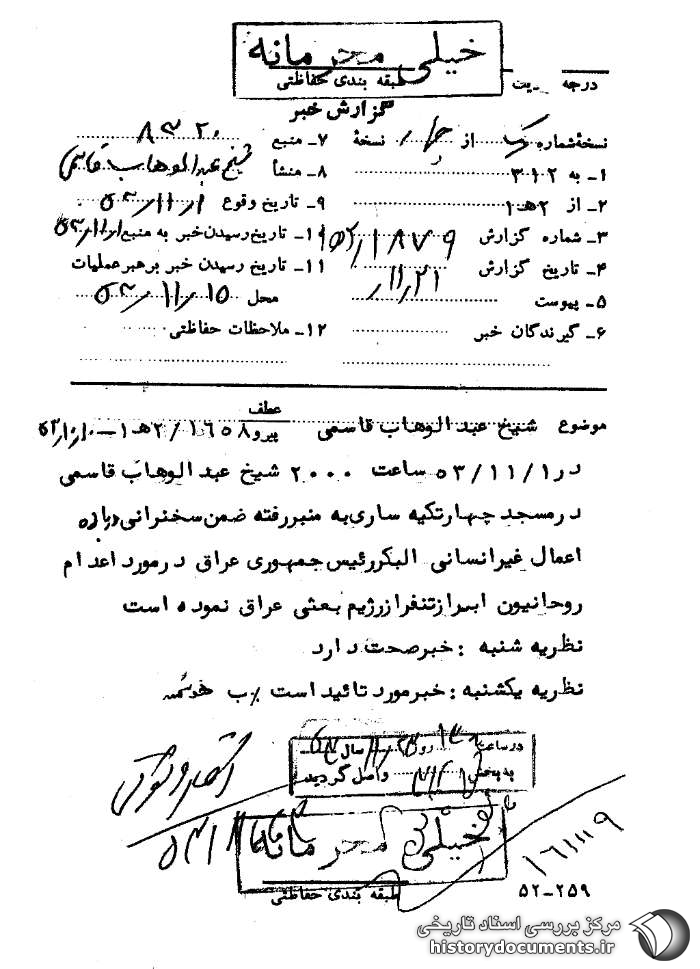 خیلی محرمانه
طبقه بندی حفاظتی
درجه
گزارش خبر
نسخهٔ شماره یک از نسخهٔ
۱ـ به ۳۱۲
۲ـ از ۲هـ۱
۳ـ شماره گزارش ۱۸۷۹
۴ـ تاریخ گزارش ۱۱/۲۱
۵ـ پیوست
۶ـ گیرندگان خبر
۷ـ منبع ۸۳۲۰
۸ـ منشأ شیخ عبدالوهاب قاسمی
۹ـ تاریخ وقوع ۵۳/۱۱/۱
۱۰ـ تاریخ رسیدن خبر به منبع ۵۳/۱۱/۱
۱۱ـ تاریخ رسیدن خبر برهبر عملیات
محل ۵۳/۱۱/۱۵
۱۲ـ ملاحظات حفاظتی
موضوع شیخ عبدالوهاب قاسمی
عطف
پیرو ۱۶۵۸/۲هـ۱ـ
در ۵۳/۱۱/۱ ساعت ۲۰۰۰ شیخ عبدالوهاب قاسمی
در مسجد چهارتکیه ساری به منبر رفته ضمن سخنرانی درباره
اعمال غیرانسانی البکر رئیس جمهوری عراق در مورد اعدام
روحانیون ابراز تنفر از رژیم بعثی عراق نموده است
نظریه شنبه : خبر صحت دارد
نظریه یکشنبه : خبر مورد تائید است
در ساعت روز سال
به بخش واصل گردید
خیلی محرمانه
طبقه بندی حفاظتی
۵۲ـ۲۵۹
مرکز بررسی اسناد تاریخی
historydocuments.ir